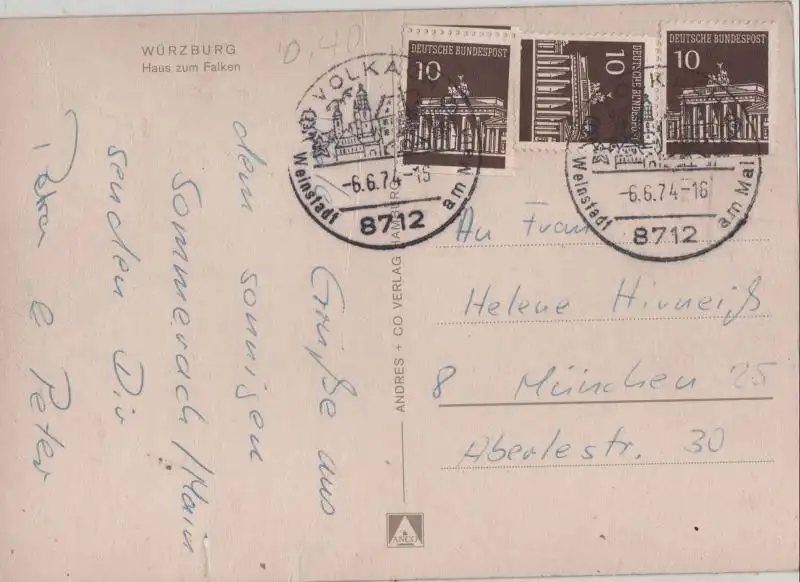 WÜRZBURG
Haus zum Falken
0,40
Grüße aus
dem sonnigen
Sommerach/Main
senden Dir
Petra e Peter
ANDRES + CO VERLAG HAMBURG
ANCO
DEUTSCHE BUNDESPOST
10
DEUTSCHE BUNDESPOST
10
DEUTSCHE BUNDESPOST
10
VOLKA
Weinstadt am Main
-6.6.74-15
8712
Weinstadt am Main
-6.6.74-16
8712
An Frau
Helene Hirneiß
8 München 25
Aberlestr. 30